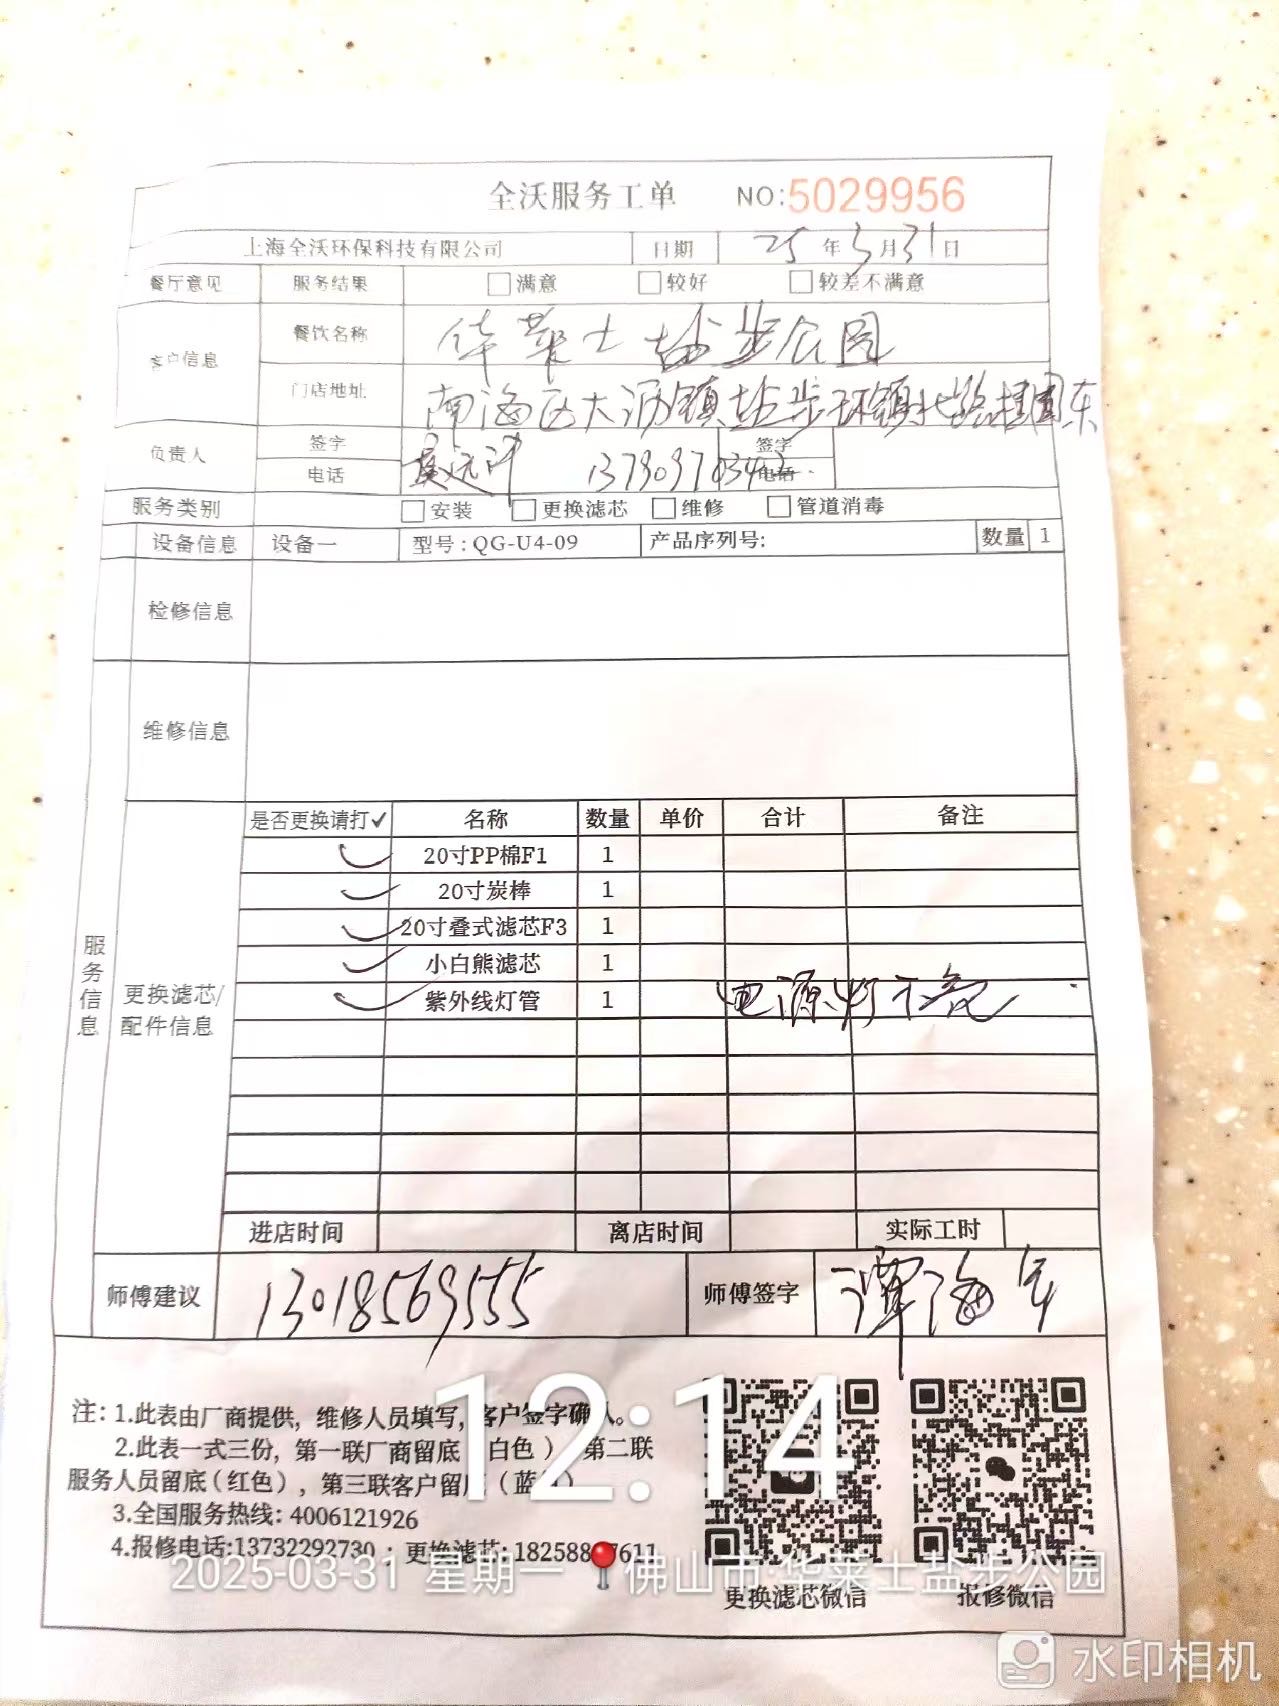 全沃服务工单 NO:5029956
上海全沃环保科技有限公司 日期 25年3月31日
餐厅意见 服务结果 满意 较好 较差不满意
客户信息 餐饮名称 华莱士盐步公园
门店地址 南海区大沥镇盐步环镇北路
负责人 签字 签字
电话 电话
服务类别 安装 更换滤芯 维修 管道消毒
设备信息 设备一 型号:QG-U4-09 产品序列号: 数量 1
检修信息
维修信息
服务信息
更换滤芯/
配件信息
是否更换请打✓ 名称 数量 单价 合计 备注
✓ 20寸PP棉F1 1
✓ 20寸炭棒 1
✓ 20寸叠式滤芯F3 1
✓ 小白熊滤芯 1
✓ 紫外线灯管 1 电源灯不亮
进店时间 离店时间 实际工时
师傅建议 13018569555 师傅签字 谭海
注: 1.此表由厂商提供, 维修人员填写, 客户签字确认。
2.此表一式三份, 第一联厂商留底(白色) 第二联
服务人员留底(红色), 第三联客户留底(蓝色)
3.全国服务热线: 4006121926
4.报修电话:13732292730 更换滤芯:
更换滤芯微信 报修微信
12:14
2025-03-31 星期一 佛山市·华莱士盐步公园
水印相机